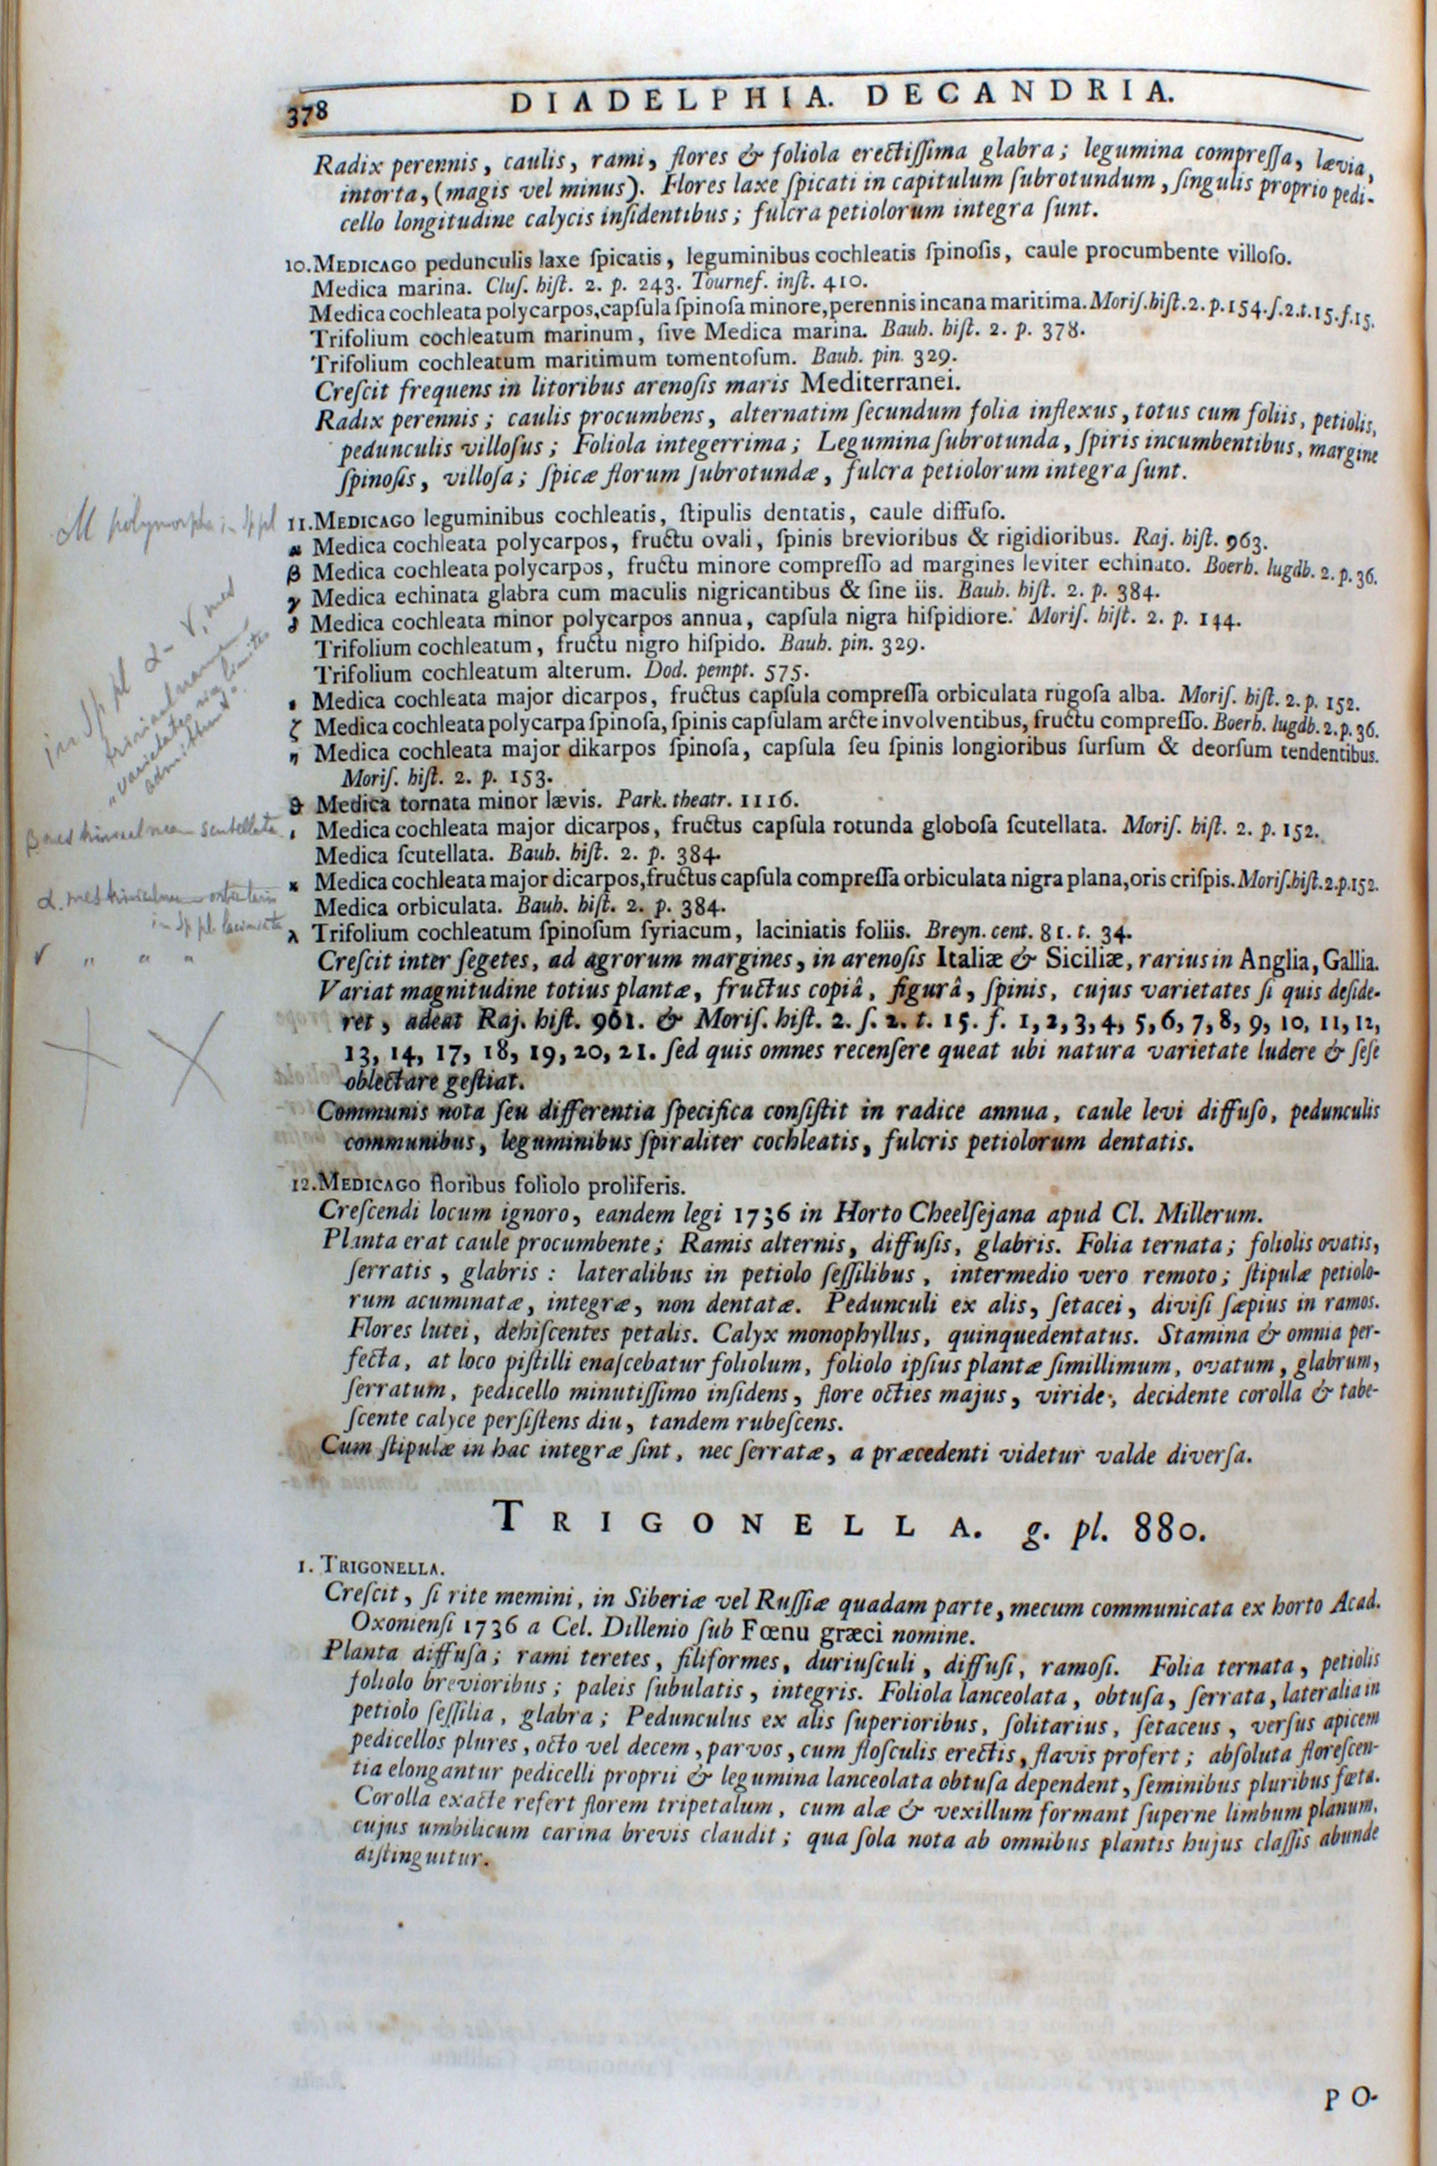 378 DIADELPHIA. DECANDRIA.
Radix perennis, caulis, rami, flores & foliola erectiſſima glabra; legumina compreſſa, lævia,
intorta, (magis vel minus). Flores laxe ſpicati in capitulum ſubrotundum, ſingulis proprio pedi-
cello longitudine calycis inſidentibus; fulcra petiolorum integra ſunt.
10. MEDICAGO pedunculis laxe ſpicatis, leguminibus cochleatis ſpinoſis, caule procumbente villoſo.
Medica marina. Cluſ. hiſt. 2. p. 243. Tournef. inſt. 410.
Medica cochleata polycarpos, capſula ſpinoſa minore, perennis incana maritima. Moriſ. hiſt. 2. p. 154. ſ. 2. t. 15. f. 15.
Trifolium cochleatum marinum, ſive Medica marina. Bauh. hiſt. 2. p. 378.
Trifolium cochleatum maritimum tomentoſum. Bauh. pin. 329.
Creſcit frequens in litoribus arenoſis maris Mediterranei.
Radix perennis; caulis procumbens, alternatim ſecundum folia inflexus, totus cum foliis, petiolis,
pedunculis villoſus; Foliola integerrima; Legumina ſubrotunda, ſpiris incumbentibus, margine
ſpinoſis, villoſa; ſpicæ florum ſubrotundæ, fulcra petiolorum integra ſunt.
M polymorpha in Sp pl
11. MEDICAGO leguminibus cochleatis, ſtipulis dentatis, caule diffuſo.
α Medica cochleata polycarpos, fructu ovali, ſpinis brevioribus & rigidioribus. Raj. hiſt. 963.
β Medica cochleata polycarpos, fructu minore compreſſo ad margines leviter echinato. Boerh. lugdb. 2. p. 36.
γ Medica echinata glabra cum maculis nigricantibus & ſine iis. Bauh. hiſt. 2. p. 384.
δ Medica cochleata minor polycarpos annua, capſula nigra hiſpidiore. Moriſ. hiſt. 2. p. 144.
Trifolium cochleatum, fructu nigro hiſpido. Bauh. pin. 329.
Trifolium cochleatum alterum. Dod. pempt. 575.
in Sp pl α - γ, med
"varietates
ε Medica cochleata major dicarpos, fructus capſula compreſſa orbiculata rugoſa alba. Moriſ. hiſt. 2. p. 152.
ζ Medica cochleata polycarpa ſpinoſa, ſpinis capſulam arcte involventibus, fructu compreſſo. Boerh. lugdb. 2. p. 36.
η Medica cochleata major dikarpos ſpinoſa, capſula ſeu ſpinis longioribus ſurſum & deorſum tendentibus.
Moriſ. hiſt. 2. p. 153.
θ Medica tornata minor lævis. Park. theatr. 1116.
scutellata
ι Medica cochleata major dicarpos, fructus capſula rotunda globoſa ſcutellata. Moriſ. hiſt. 2. p. 152.
Medica ſcutellata. Bauh. hiſt. 2. p. 384.
κ Medica cochleata major dicarpos, fructus capſula compreſſa orbiculata nigra plana, oris criſpis. Moriſ. hiſt. 2. p. 152.
Medica orbiculata. Bauh. hiſt. 2. p. 384.
in Sp pl
λ Trifolium cochleatum ſpinoſum ſyriacum, laciniatis foliis. Breyn. cent. 81. t. 34.
γ " " "
Creſcit inter ſegetes, ad agrorum margines, in arenoſis Italiæ & Siciliæ, rarius in Anglia, Gallia.
Variat magnitudine totius plantæ, fructus copiâ, figurâ, ſpinis, cujus varietates ſi quis deſide-
ret, adeat Raj. hiſt. 961. & Moriſ. hiſt. 2. ſ. 2. t. 15. f. 1, 2, 3, 4, 5, 6, 7, 8, 9, 10, 11, 12,
13, 14, 17, 18, 19, 20, 21. ſed quis omnes recenſere queat ubi natura varietate ludere & ſeſe
oblectare geſtiat.
Communis nota ſeu differentia ſpecifica conſiſtit in radice annua, caule levi diffuſo, pedunculis
communibus, leguminibus ſpiraliter cochleatis, fulcris petiolorum dentatis.
12. MEDICAGO floribus foliolo proliferis.
Creſcendi locum ignoro, eandem legi 1736 in Horto Cheelſejana apud Cl. Millerum.
Planta erat caule procumbente; Ramis alternis, diffuſis, glabris. Folia ternata; foliolis ovatis,
ſerratis, glabris: lateralibus in petiolo ſeſſilibus, intermedio vero remoto; ſtipulæ petiolo-
rum acuminatæ, integræ, non dentatæ. Pedunculi ex alis, ſetacei, diviſi ſæpius in ramos.
Flores lutei, dehiſcentes petalis. Calyx monophyllus, quinquedentatus. Stamina & omnia per-
fecta, at loco piſtilli enaſcebatur foliolum, foliolo ipſius plantæ ſimillimum, ovatum, glabrum,
ſerratum, pedicello minutiſſimo inſidens, flore octies majus, viride, decidente corolla & tabe-
ſcente calyce perſiſtens diu, tandem rubeſcens.
Cum ſtipulæ in hac integræ ſint, nec ſerratæ, a præcedenti videtur valde diverſa.
TRIGONELLA. g. pl. 880.
1. TRIGONELLA.
Creſcit, ſi rite memini, in Siberiæ vel Ruſſiæ quadam parte, mecum communicata ex horto Acad.
Oxonienſi 1736 a Cel. Dillenio ſub Fœnu græci nomine.
Planta diffuſa; rami teretes, filiformes, duriuſculi, diffuſi, ramoſi. Folia ternata, petiolis
foliolo brevioribus; paleis ſubulatis, integris. Foliola lanceolata, obtuſa, ſerrata, lateralia in
petiolo ſeſſilia, glabra; Pedunculus ex alis ſuperioribus, ſolitarius, ſetaceus, verſus apicem
pedicellos plures, octo vel decem, parvos, cum floſculis erectis, flavis profert; abſoluta floreſcen-
tia elongantur pedicelli proprii & legumina lanceolata obtuſa dependent, ſeminibus pluribus fœta.
Corolla exacte refert florem tripetalum, cum alæ & vexillum formant ſuperne limbum planum,
cujus umbilicum carina brevis claudit; qua ſola nota ab omnibus plantis hujus claſſis abunde
diſtinguitur.
PO-